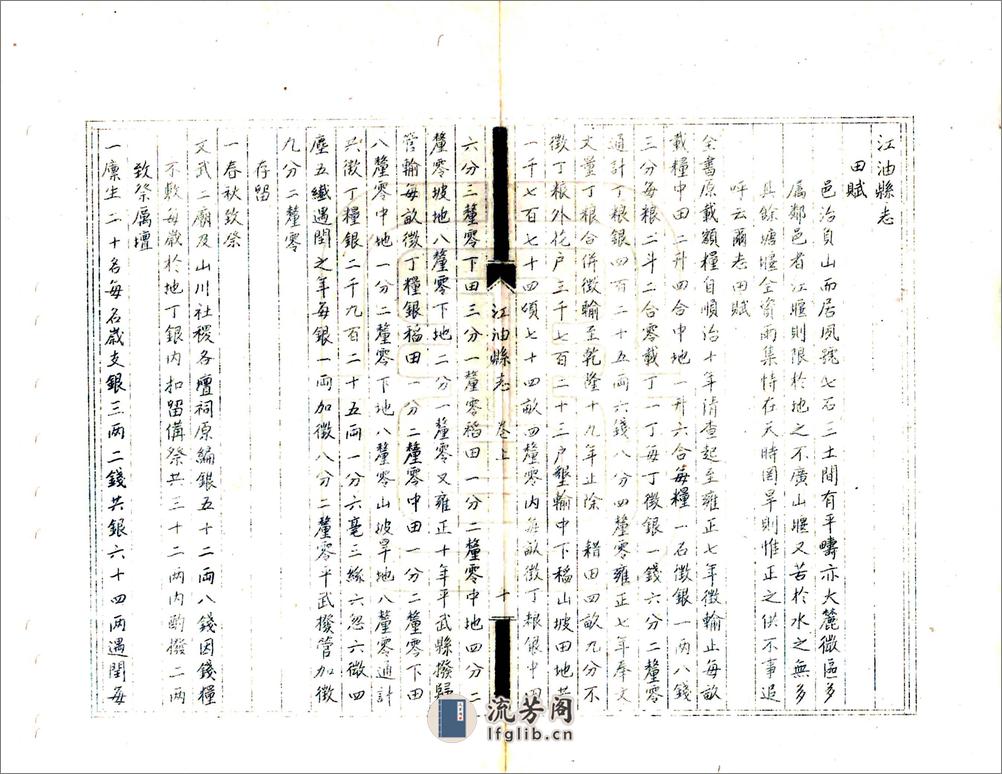 江油縣志
田賦
邑治負山而居夙號七石三土間有平疇亦大麓微區多
屬鄰邑者江堰則限於地之不廣山堰又苦於水之無多
其餘塘堰全資雨集恃在天時罔旱則惟正之供不事追
呼云爾志田賦
全書原載額糧自順治十年清查起至雍正七年徵輸止每畝
載糧中田二升四合中地一升六合每糧一石徵銀一兩八錢
三分每粮二斗二合零載丁一丁每丁徵銀一錢六分二釐零
通計丁粮銀四百二十五兩六錢八分四釐零雍正七年奉文
丈量丁粮合併徵輸至乾隆十九年止除 耤田四畝九分不
徵丁粮外花户三千七百二十三户墾輸中下稲山坡田地共
一千七百七十四頃七十四畝四釐零内每畝徵丁粮銀中田
江油縣志 卷上 十
六分三釐零下田三分一釐零稲田一分二釐零中地四分二
釐零坡地八釐零下地二分一釐零又雍正十年平武縣撥歸
管輸每畝徵丁糧銀稲田一分二釐零中田一分二釐零下田
八釐零中地一分二釐零下地八釐零山坡旱地八釐零通計
共徵丁糧銀二千九百二十五両一分六毫三絲六忽六微四
塵五纖遇閏之年每銀一両加徵八分二釐零平武撥管加徵
九分二釐零
存留
一春秋致祭
文武二廟及山川社稷各壇祠原編銀五十二両八錢因錢糧
不敷每歲於地丁銀内扣留備祭共三十二两内酌撥二两
致祭厲壇
一廪生二十名每名歲支銀三两二錢共銀六十四两遇閏每
流芳阁
lfglib.cn